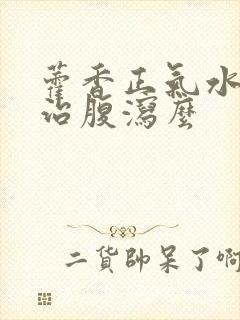 藿香正氣水
治腹瀉麼
二貨帥呆了啊